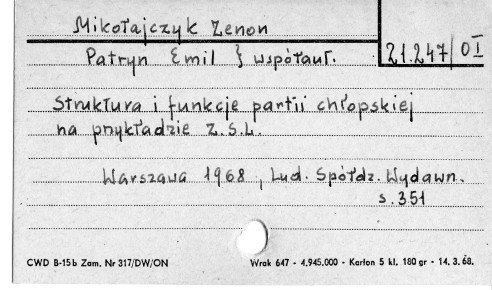 Mikołajczyk Zenon
Patryn Emil } współaut. 21.247/OI
Struktura i funkcje partii chłopskiej
na przykładzie Z.S.L.
Warszawa 1968, Lud. Spółdz. Wydawn.
s. 351
CWD B-15b Zam. Nr 317/DW/ON Wrak 647 - 4.945.000 - Karton 5 kl. 180 gr - 14. 3. 68.